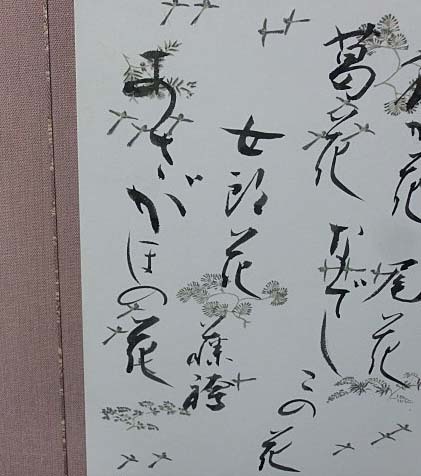 花
尾花
葛の花
なでし
この花
女郎花
藤袴
あさがほの花